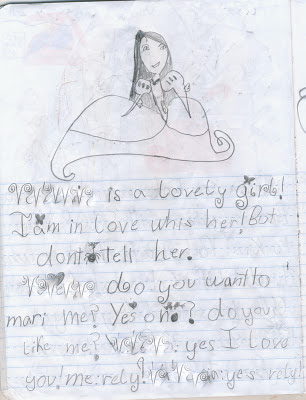 is a lovely girl!
I am in love whis her! But
dont tell her.
do you want to
mari me? Yes o no? do you
like me? : yes I love
you! me: rely! : yes rely!